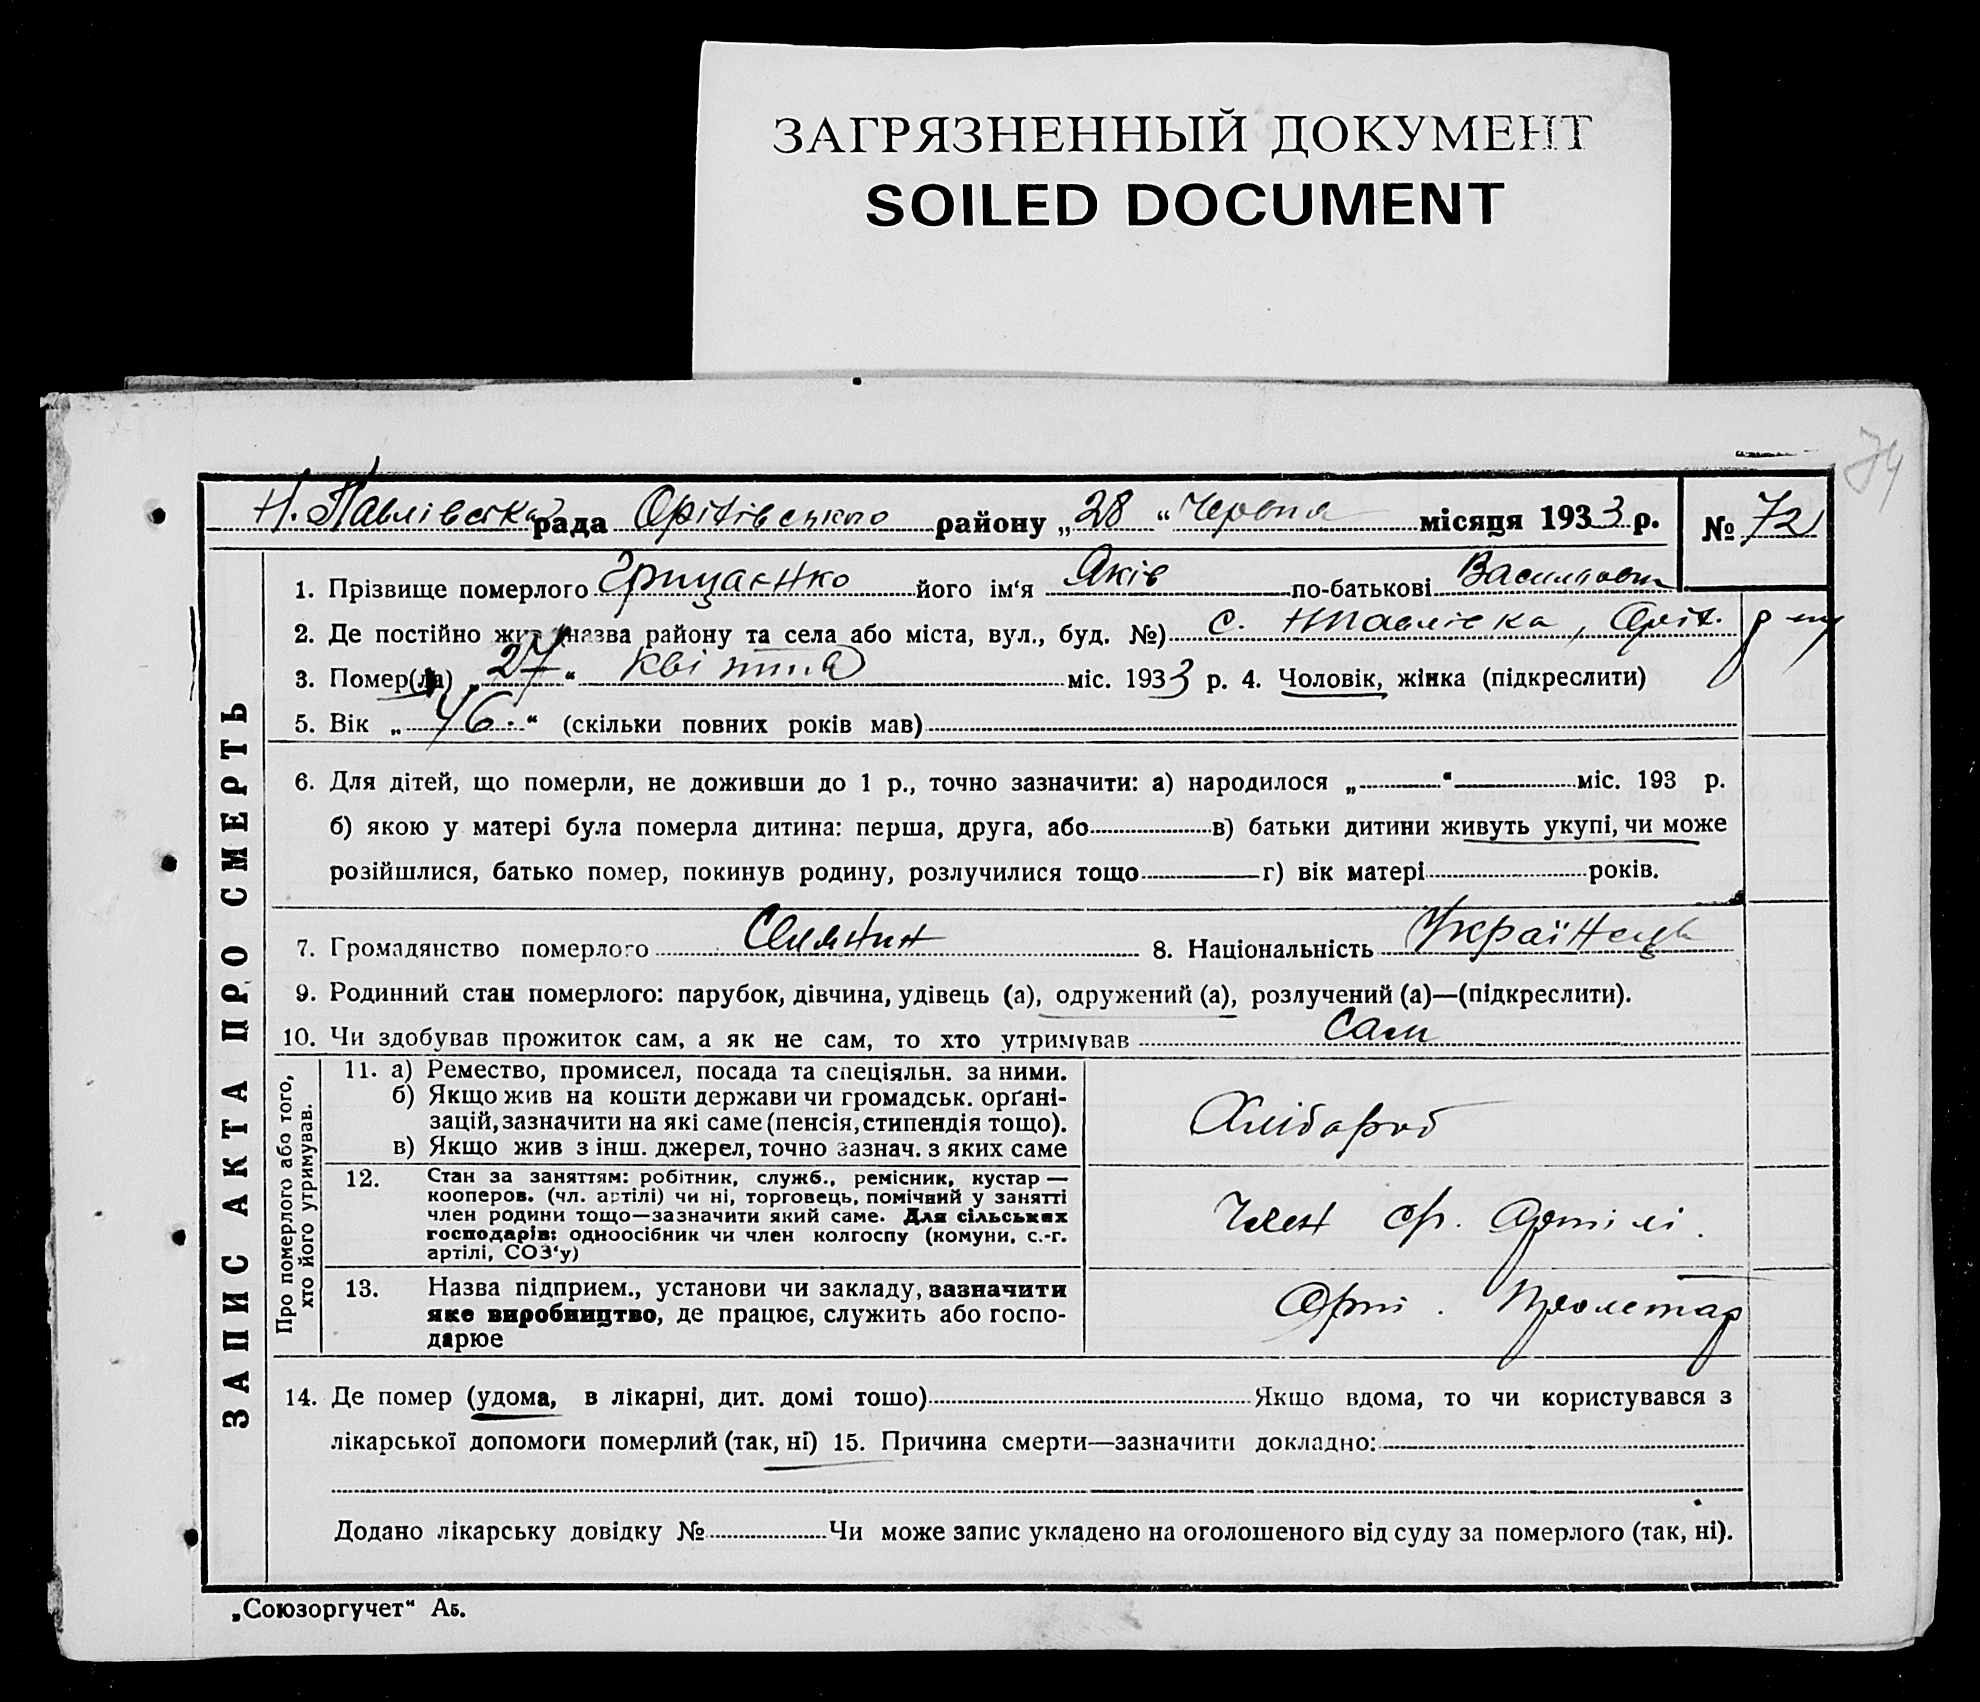 ЗАГРЯЗНЕННЫЙ ДОКУМЕНТ
SOILED DOCUMENT
74
Н. Павлівська рада Оріхівського району „28“ Червня місяця 1933 р. № 72
1. Прізвище померлого Грицаєнко його ім‘я Яків по-батькові Васильович
2. Де постійно жив (назва району та села або міста, вул., буд. №) с. НПавлівка, Оріх. р-ну
3. Помер(ла) „27“ квітня міс. 1933 р. 4. Чоловік, жінка (підкреслити)
5. Вік „46.“ (скільки повних років мав)
6. Для дітей, що померли, не доживши до 1 р., точно зазначити: а) народилося „ “ міс. 193 р.
б) якою у матері була померла дитина: перша, друга, або в) батьки дитини живуть укупі, чи може
розійшлися, батько помер, покинув родину, розлучилися тощо г) вік матері років.
7. Громадянство померлого Селянин 8. Національність Українець
9. Родинний стан померлого: парубок, дівчина, удівець (а), одружений (а), розлучений (а)—(підкреслити).
10. Чи здобував прожиток сам, а як не сам, то хто утримував Сам
ЗАПИС АКТА ПРО СМЕРТЬ
Про померлого або того,
хто його утримував.
11. а) Ремество, промисел, посада та спеціяльн. за ними.
б) Якщо жив на кошти держави чи громадськ. орґані-
зацій, зазначити на які саме (пенсія, стипендія тощо).
в) Якщо жив з інш. джерел, точно зазнач. з яких саме
Хлібороб
12. Стан за заняттям: робітник, служб., ремісник, кустар —
кооперов. (чл. артілі) чи ні, торговець, помічний у занятті
член родини тощо—зазначити який саме. Для сільських
господарів: одноосібник чи член колгоспу (комуни, с.-г.
артілі, СОЗ‘у)
Член Артілі.
13. Назва підприєм., установи чи закладу, зазначити
яке виробництво, де працює, служить або госпо-
дарює
Арті. Пролетар
14. Де помер (удома, в лікарні, дит. домі тошо) Якщо вдома, то чи користувався з
лікарської допомоги померлий (так, ні) 15. Причина смерти—зазначити докладно:
Додано лікарську довідку № Чи може запис укладено на оголошеного від суду за померлого (так, ні).
„Союзоргучет“ Аб.